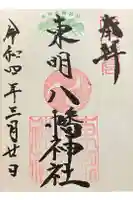 奉拝
東明八幡神社
令和四年三月廿日